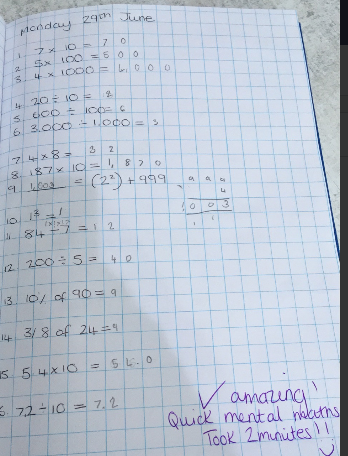 Monday 29th June
1. 7 x 10 = 7 0
2. 5 x 100 = 5 0 0
3. 4 x 1000 = 4, 0 0 0
4. 20 ÷ 10 = 2
5. 600 ÷ 100 = 6
6. 3,000 ÷ 1,000 = 3
7. 4 x 8 = 3 2
8. 187 x 10 = 1, 8 7 0
9. 1,003 = (2²) + 999
9 9 9
4
1 0 0 3
1 1
10. 1³ = 1
1x1x1
11. 84 ÷ 7 = 1 2
12. 200 ÷ 5 = 4 0
13. 10% of 90 = 9
14. 3/8 of 24 = 9
15. 5.4 x 10 = 5 4.0
16. 72 ÷ 10 = 7.2
✓ amazing!
Quick mental maths
Took 2 minutes!!